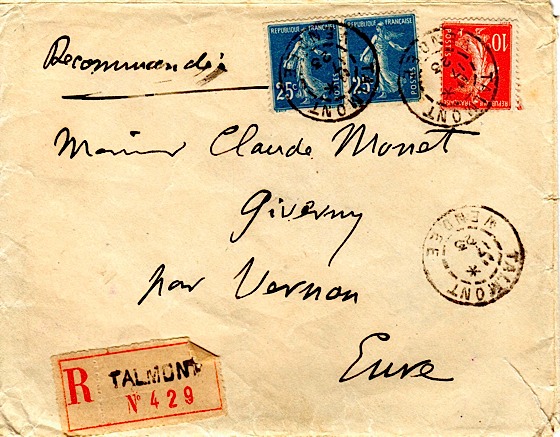 Recommandée
RÉPUBLIQUE FRANÇAISE
25c POSTES
RÉPUBLIQUE FRANÇAISE
25c POSTES
RÉPUBLIQUE FRANÇAISE
10c POSTES
TALMONT
VENDÉE
Monsieur Claude Monet
Giverny
par Vernon
Eure
TALMONT
VENDÉE
23
R TALMONT
No 429